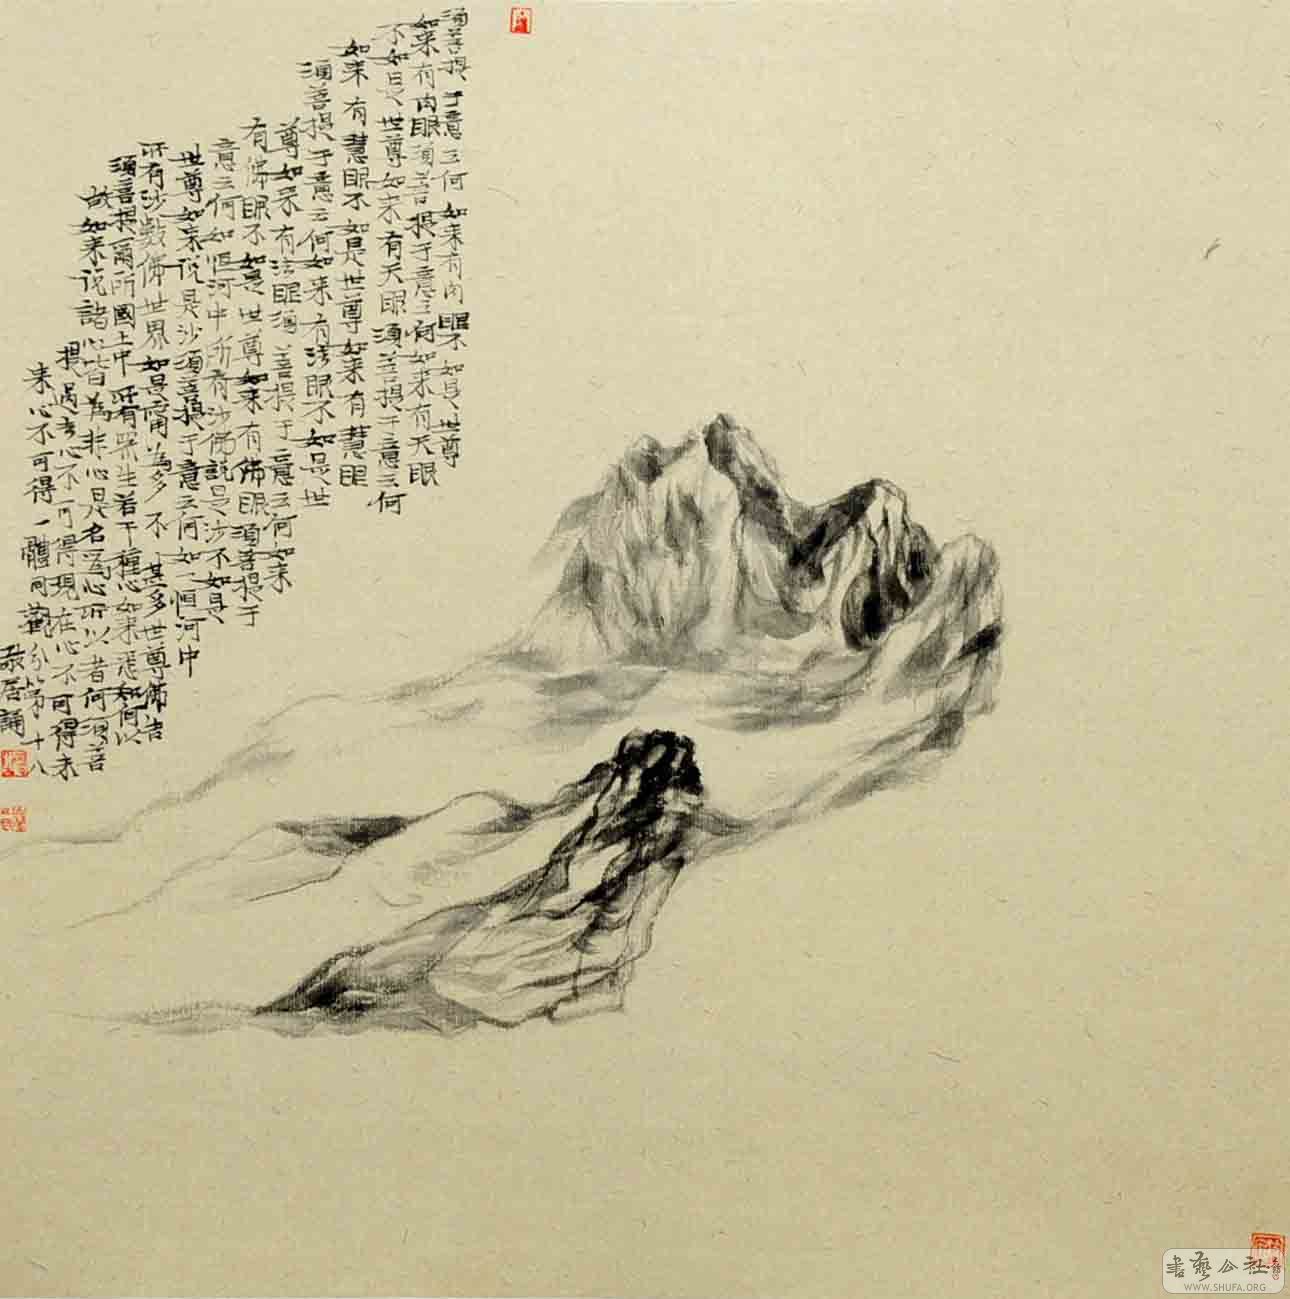 須菩提于意云何如来有肉眼不如是世尊
如来有肉眼須菩提于意云何如来有天眼
不如是世尊如来有天眼須菩提于意云何
如来有慧眼不如是世尊如来有慧眼
須菩提于意云何如来有法眼不如是世
尊如来有法眼須菩提于意云何如来
有佛眼不如是世尊如来有佛眼須菩提于
意云何如恒河中所有沙佛說是沙不如是
世尊如来說是沙須菩提于意云何如一恒河中
所有沙數佛世界如是甯為多不甚多世尊佛告
須菩提爾所國土中所有眾生若干種心如来悉知何以
故如来說諸心皆為非心是名為心所以者何須菩
提過去心不可得現在心不可得未
来心不可得一體同觀分第十八
敬居誦
書藝公社
WWW.SHUFA.ORG